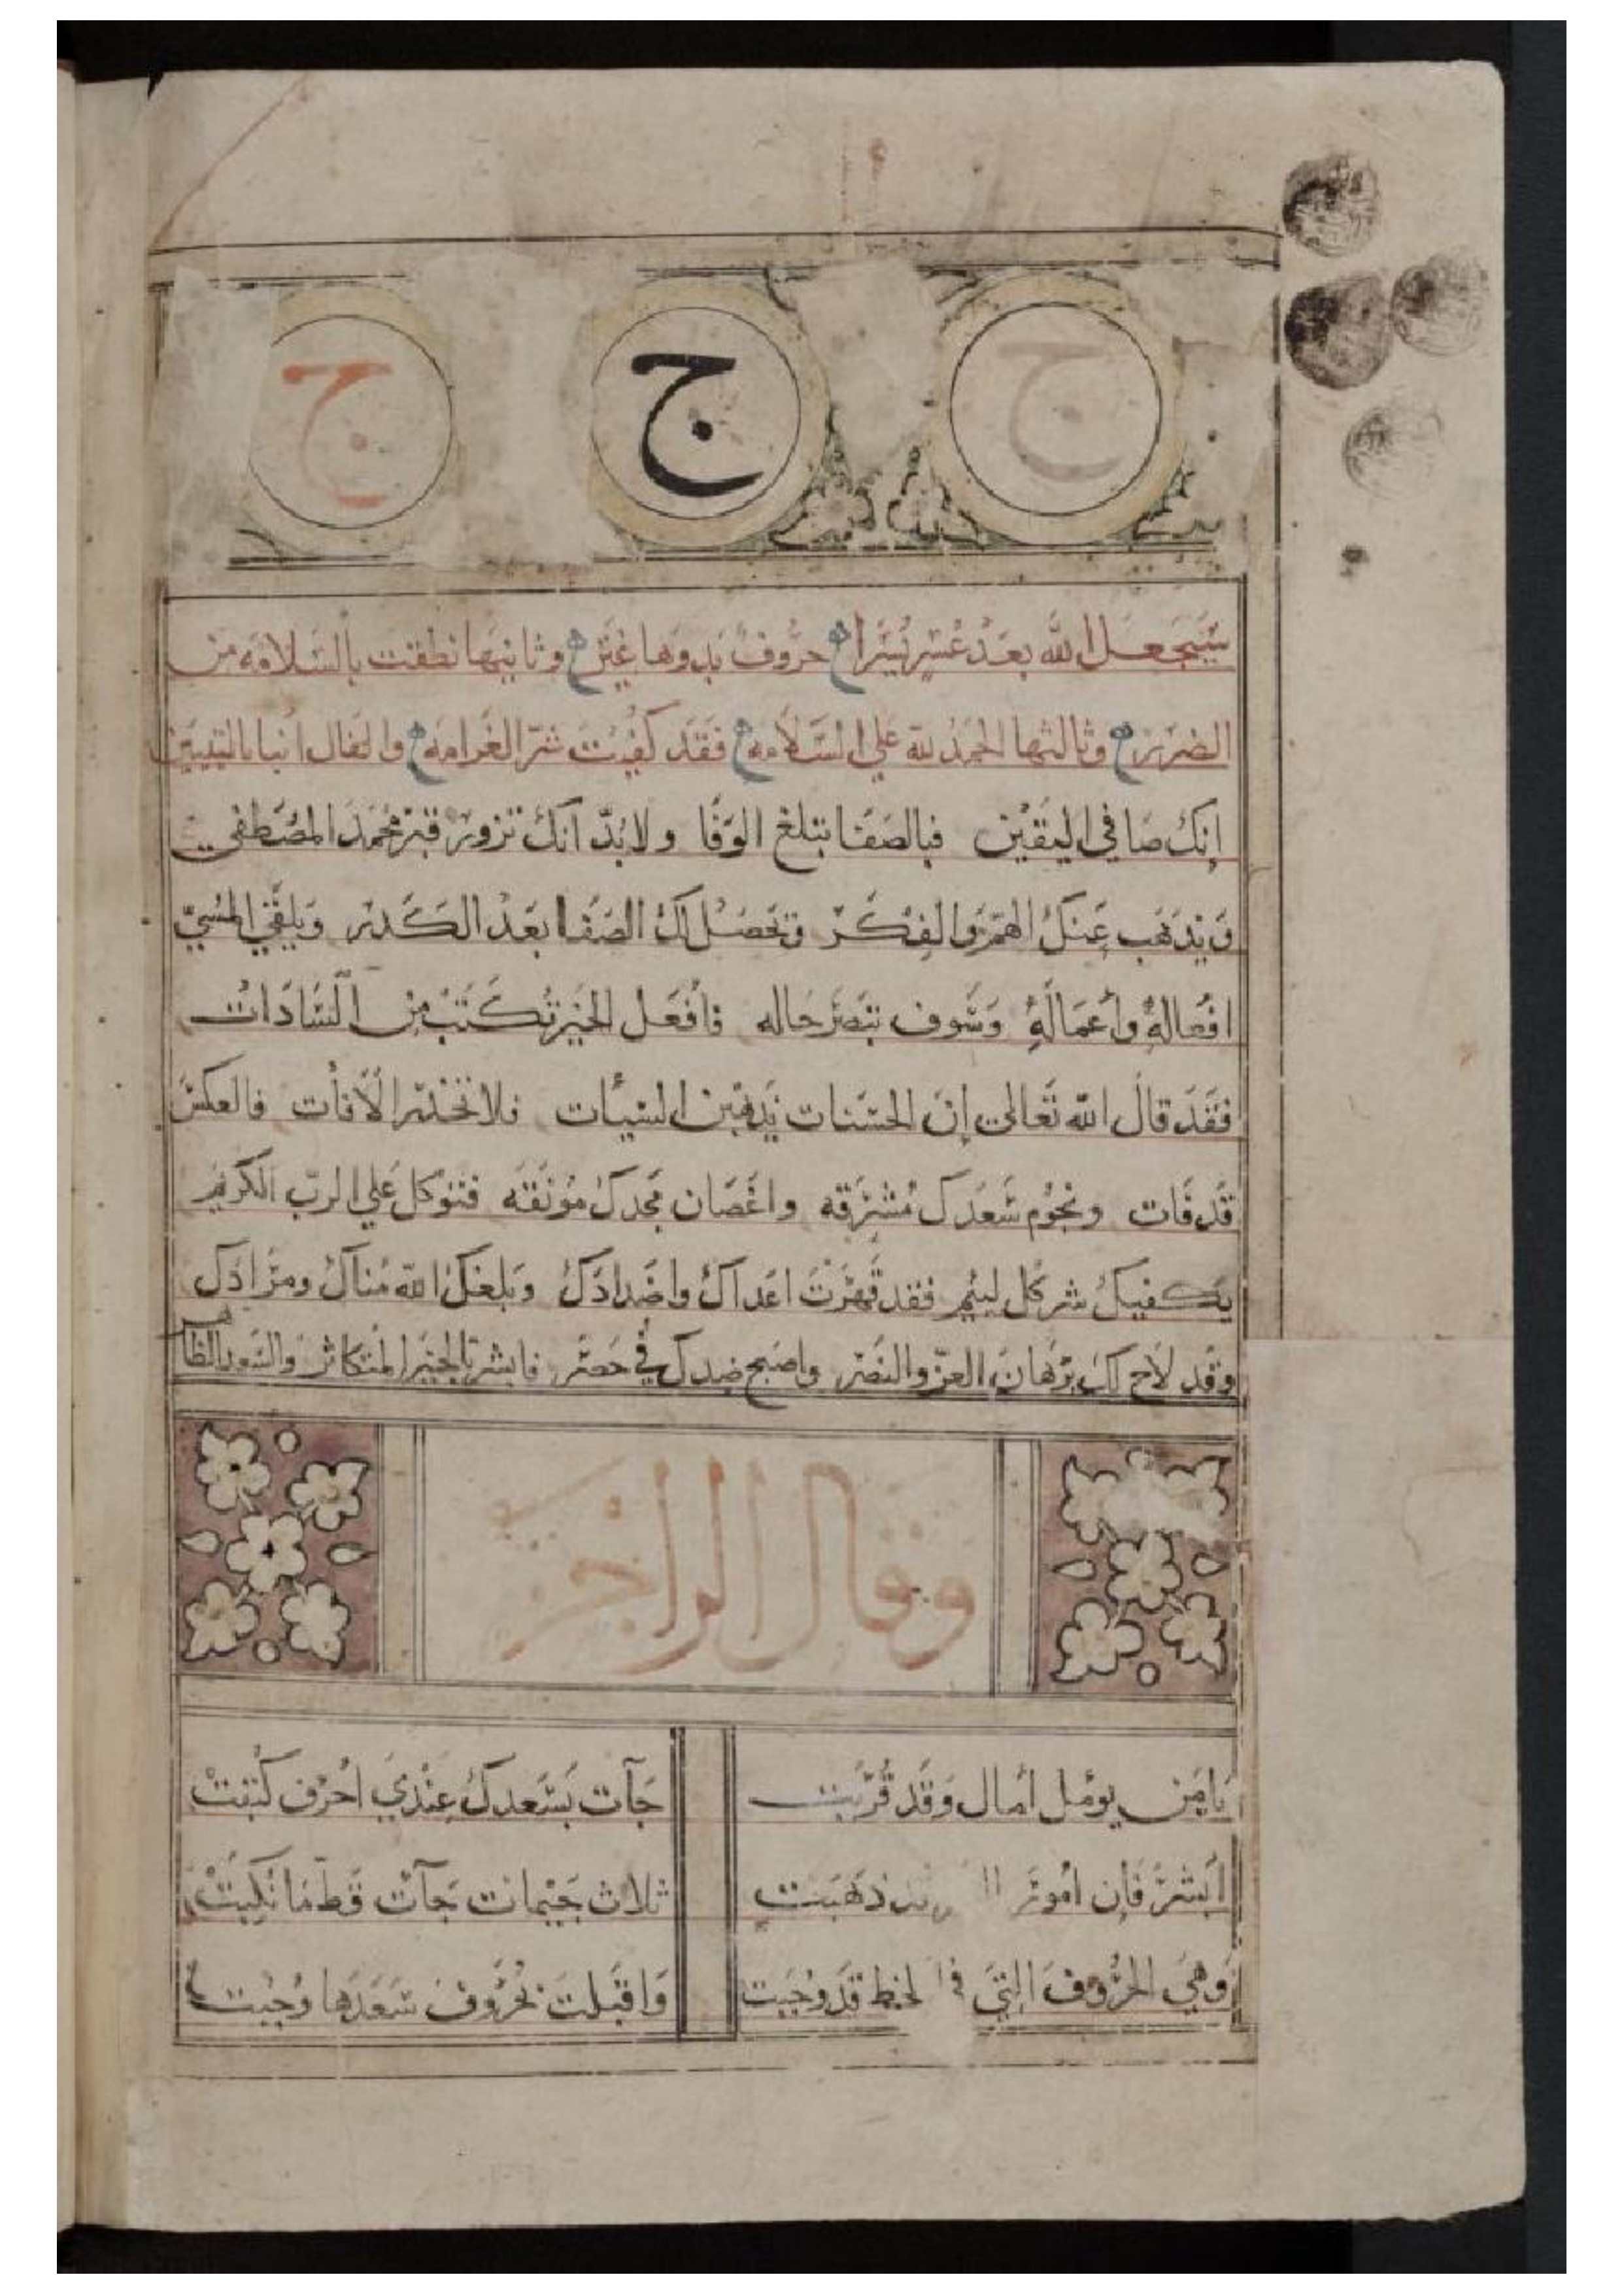 ج ج ج
سَيَجعَل الله بعَدَ عُسْرٍ يُسْرًا حرُوف بدوها عَين وثانيها نطقت بالسَلامه من
الضرر وثالثها الحمَدُ لله علي السَلاَمه فَقَد كفُيت شرّ الغَرامَه والفال انبا باليقين
إنكَ صَافي اليَقين فبالصَفَا تبلغ الوَفَا ولا بُدّ انكَ تزور قبر محَمَد المصُطَفي
وَيَذهَب عَنكَ الهَمّ وَالفِكَر وتحصَل لكَ الصَفَا بعَدَ الكَدر وَيلقَي المسُيّ
افعاله وأعمَاله وَسَوف تبصَر حَاله فاَفعَل الخَير تُكتَب مِن السَادَات
فَقَد قال الله تَعَالي إنّ الحسَنات يُذهبن السَيئات فلا تخشَ الاَفات فالعكسَ
قَد فَات ونجوُم سَعدَك مُشرقه واغصَان مجَدك مُونقه فتوكل علي الربّ الكَريم
يَكفيكَ شر كُل لئيم فقد قَهَرتَ اعَداكَ واضَدادَكَ وبلغكَ الله مُناكَ ومرَادَك
وقد لاَح لكَ برُهان العزّ والنَصر واصبح ضدك في حَصَر فابشر بالخَير المتكاثر والسَعد الظاهر
وفال الراجز
يَا مَن يومل امال وَقَد قُرّبت جَآت بسَعدك عِنْدي احرف كُتبَتْ
اَبشر فَإن اموُر ذهَبَت ثلاث جَيْمات جَآت قَط مَا نكبَتْ
وَهيَ الحرُوف التِي في الخط قَد وجُبَت وَاقَبلت بحرُوف سَعَدَها وجُبت